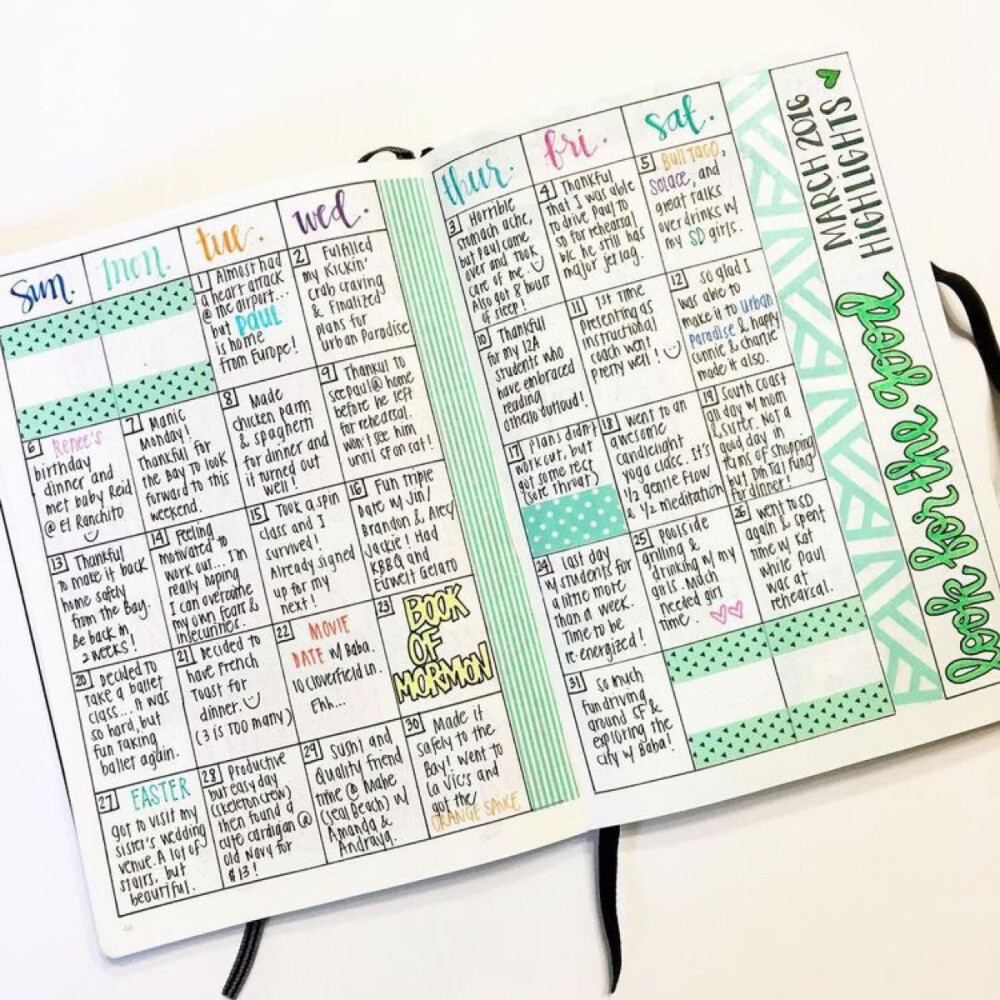 sun.
mon.
tue.
wed.
thur.
fri.
sat.
MARCH 2016
HIGHLIGHTS
look for the good
1 Almost had
a heart attack
@ the airport...
but PAUL
is home
from Europe!
2 Fulfilled
my Kickin'
crab craving
& Finalized
plans for
Urban Paradise
3 Horrible
stomach ache,
but Paul came
over and took
care of me.
Also got 8 hours
of sleep!
4 Thankful
that I was able
to drive Paul to
SD for rehearsal
b/c he still has
major jetlag.
5 Bull Taco,
Solace, and
great talks
over drinks w/
my SD girls.
6 Renee's
birthday
dinner and
met baby Reid
@ El Ranchito
7 Manic
Monday!
Thankful for
the Bay to look
forward to this
weekend.
8 Made
chicken parm
& spaghetti
for dinner and
it turned out
well!
9 Thankful to
see Paul @ home
before he left
for rehearsal.
Won't see him
until SF on Sat!
10 Thankful
for my 12A
students who
have embraced
reading
Othello outloud!
11 1st time
presenting as
instructional
coach went
pretty well!
12 so glad I
was able to
make it to Urban
Paradise & happy
Connie & Charlie
made it also.
13 Thankful
to make it back
home safely
from the Bay.
Be back in
2 weeks!
14 Feeling
motivated to
work out... I'm
really hoping
I can overcome
my own fears &
insecurities.
15 Took a spin
class and I
survived!
Already signed
up for my
next!
16 Fun triple
Date w/ Jin/
Brandon & Alec/
Jackie! Had
KBBQ and
Eiswelt Gelato
17 Plans didn't
work out, but
got some rest
(sore throat)
18 Went to an
awesome
candlelight
yoga class. It's
1/2 gentle flow
& 1/2 meditation
19 South Coast
all day w/ mom
& sister. Not a
good day in
terms of shopping
but Din Tai Fung
for dinner!
20 Decided to
take a ballet
class... It was
so hard, but
fun taking
ballet again.
21 Decided to
have French
Toast for
dinner.
(3 is TOO many)
22 MOVIE
DATE w/ Baba.
10 Cloverfield Ln.
Ehh...
23 BOOK
OF
MORMON
24 Last day
w/ students for
a little more
than a week.
Time to be
re-energized!
25 Poolside
grilling &
drinking w/ my
girls. Much
needed girl
time.
26 Went to SD
again & spent
time w/ Kat
while Paul
was at
rehearsal.
27 EASTER
got to visit my
sister's wedding
venue. A lot of
stairs, but
beautiful.
28 Productive
but easy day
(skeleton crew)
then found a
cute cardigan @
Old Navy for
$13!
29 Sushi and
Quality friend
time @ Mahe
(Seal Beach) w/
Amanda &
Andraya.
30 Made it
safely to the
Bay! Went to
La Vic's and
got the
ORANGE SAUCE
31 So much
fun driving
around SF &
exploring the
city w/ Baba!